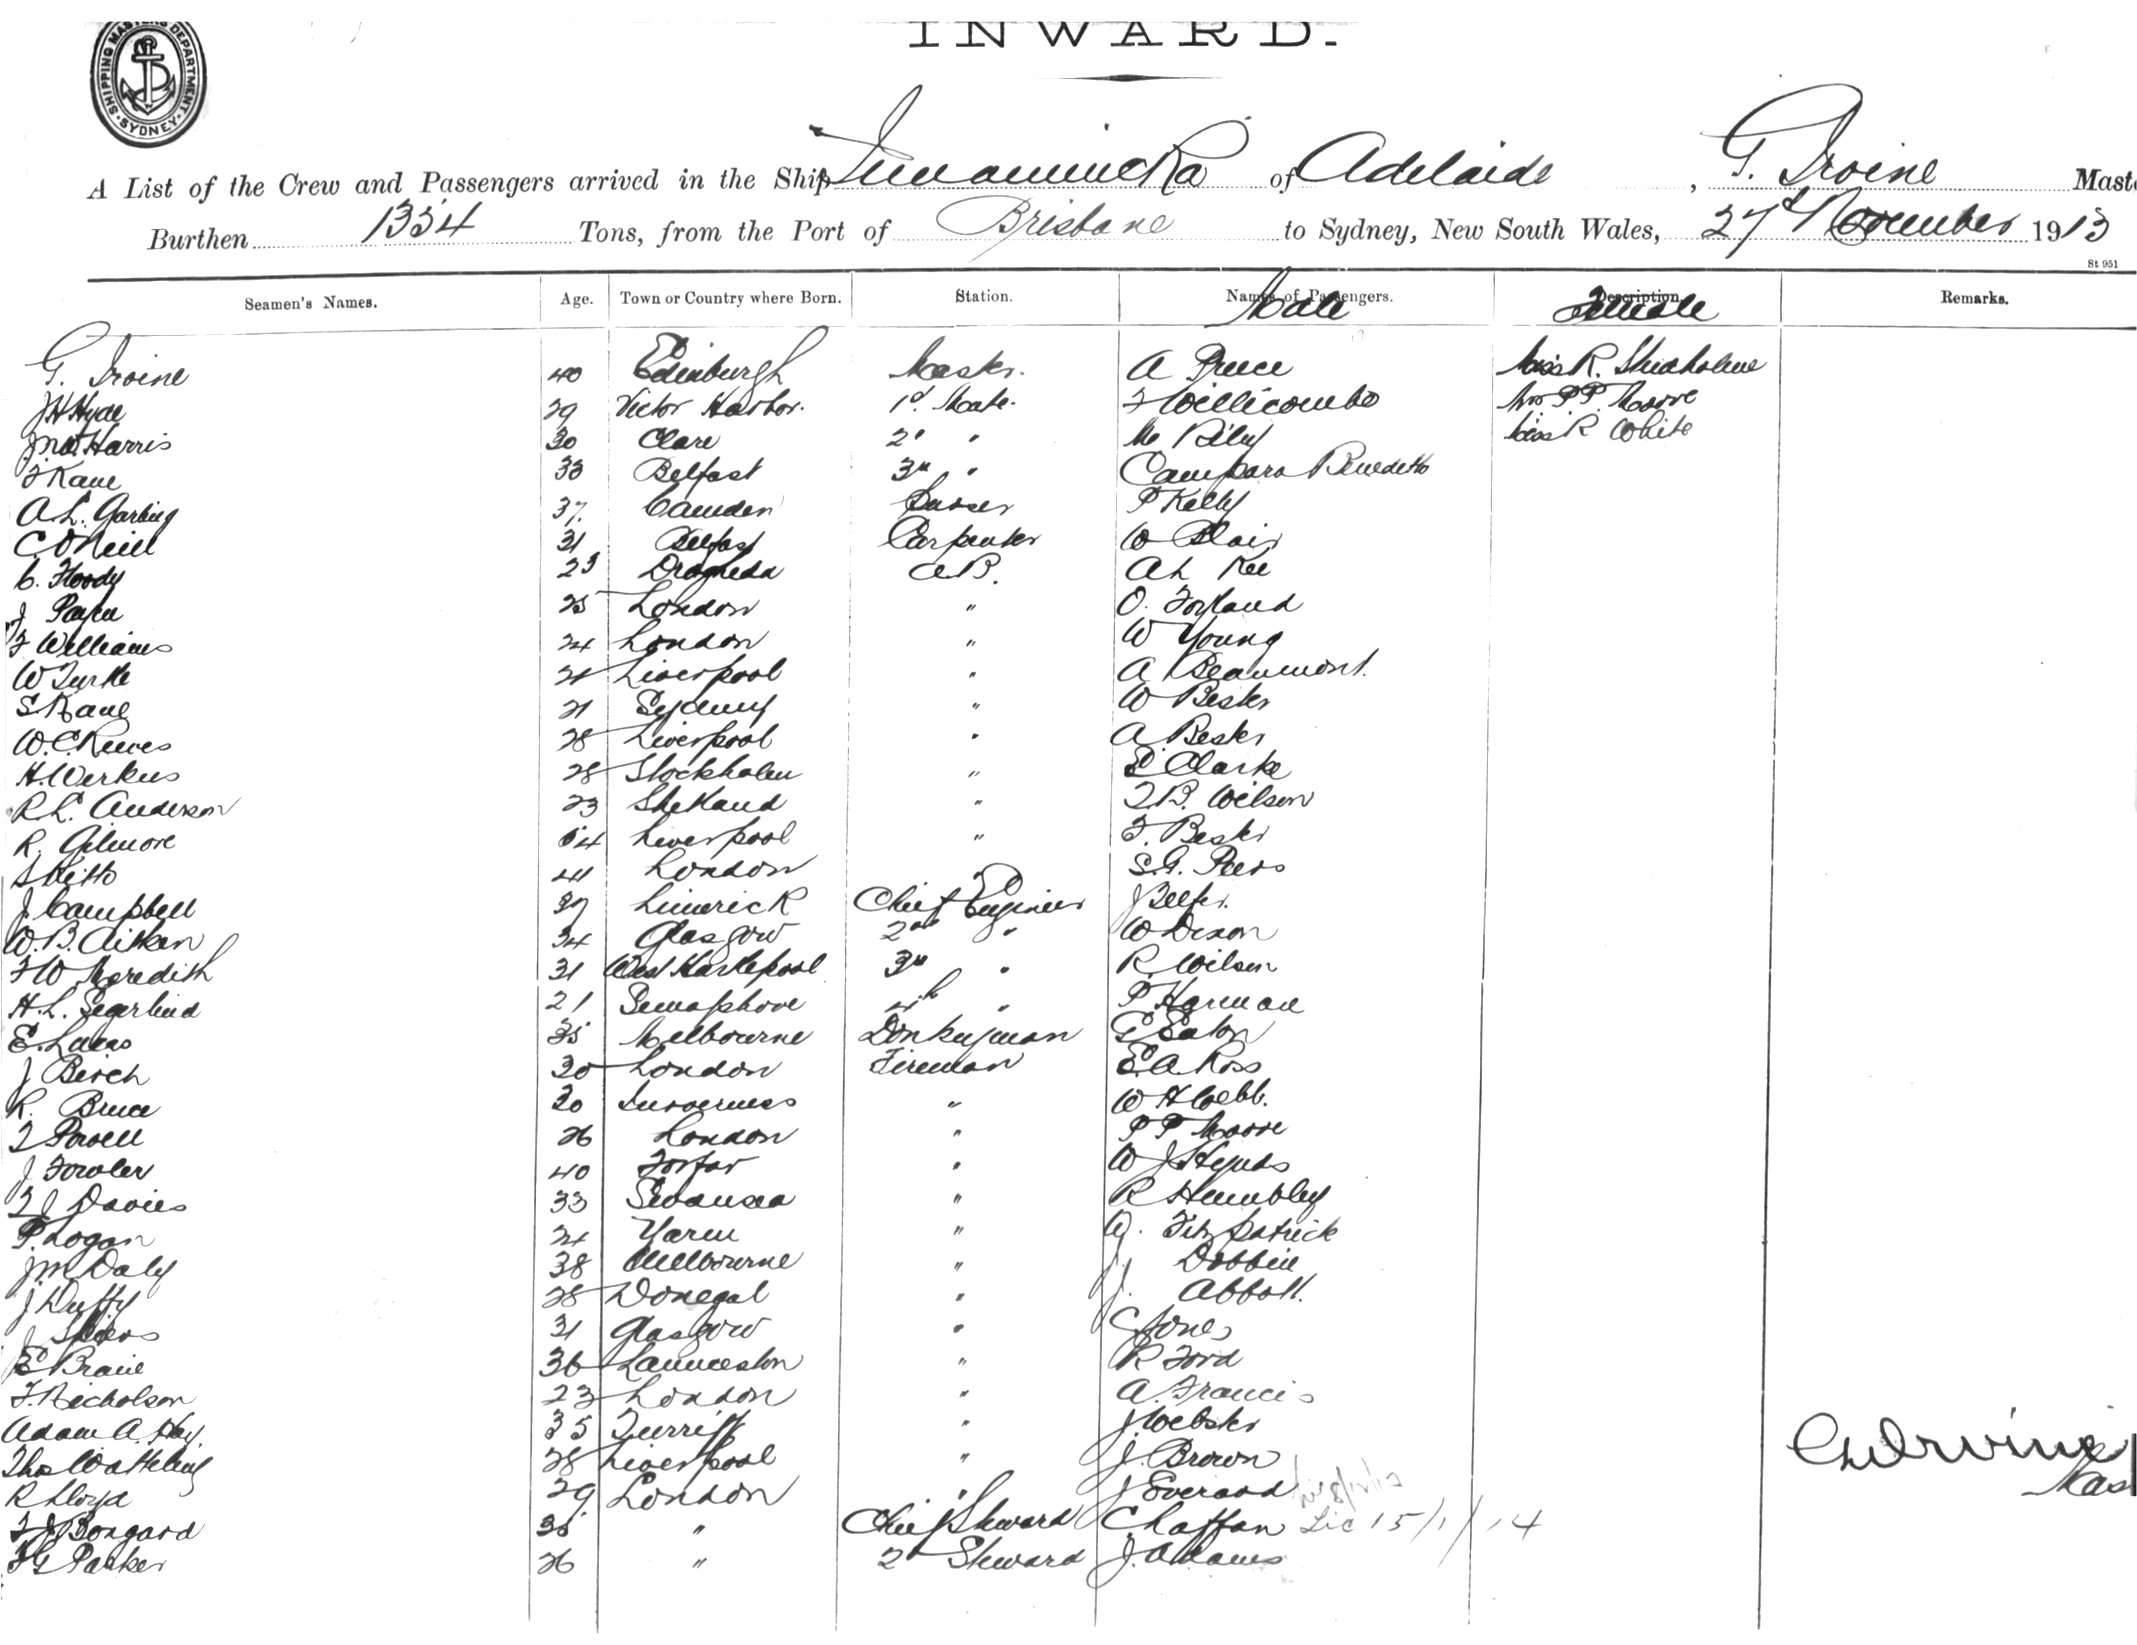 SHIPPING MASTERS DEPARTMENT. SYDNEY.
INWARD.
A List of the Crew and Passengers arrived in the Ship Innamincka of Adelaide, G. Irvine Mast
Burthen 1334 Tons, from the Port of Brisbane to Sydney, New South Wales, 27th November 1913
St 951
Seamen's Names. Age. Town or Country where Born. Station. Names of Passengers. Description. Remarks.
Male Female
G. Irvine 40 Edinburgh Master. A Preece Miss R.
J H Hyde 29 Victor Harbor. 1st Mate. F Willicombe Mrs P P. Moore
Jno. Harris 30 Clare 2d " M Riley Miss R White
F Kane 33 Belfast 3rd " Campara Benedetto
A. L. Garling 37. Camden Purser P Kelly
C. O'Neill 31 Belfast Carpenter W Blair
C. Floody 23 Drogheda A.B. Ah Kee
J Payne 25 London " O. Foxland
F Williams 24 London " W Young
W Turtle 21 Liverpool " A Beaumont.
S Kane 21 Sydney " W Bester
W. C. Reeves 28 Liverpool " A Bester
H. Werkus 28 Stockholm " E Clarke
R. L. Anderson 23 Shetland " T. B. Wilson
R. Gilmore 54 Liverpool " F. Bester
S Kitto 41 London S. G. Peers
J. Campbell 37 Limerick Chief Engineer J Belfer.
W. B. Aitken 34 Glasgow 2nd " W Dixon
F W Meredith 31 West Hartlepool 3rd " R. Wilson
H. L. Segerlind 21 Semaphore 4th " P Harman
E. Lucas 35 Melbourne Donkeyman G Eaton
J Birch 30 London Fireman E. A. Ross
R. Bruce 30 Inverness " W H Webb.
T Powell 26 London " P P Moore
J Fowler 40 Forfar " W J Hynds
T J Davies 33 Swansea " R Humbley
P. Logan 24 Yarm " W. Fitzpatrick
J M Daly 38 Melbourne " J. Dobbie
J Duffy 28 Donegal " J. Abbott.
J Spiers 31 Glasgow " C Jones
E Braine 36 Launceston " R Ford
F. Nicholson 23 London " A. Francis
Adam A. Hay. 35 Turriff " J Webster
Thos Watteling 28 Liverpool " J. Brown
R Lloyd 29 London " J Everard
F J Bongard 35 " Chief Steward Chaffan Lic 15/1/14
F G Parker 26 " 2d Steward J. Adams
G Irvine
Mas